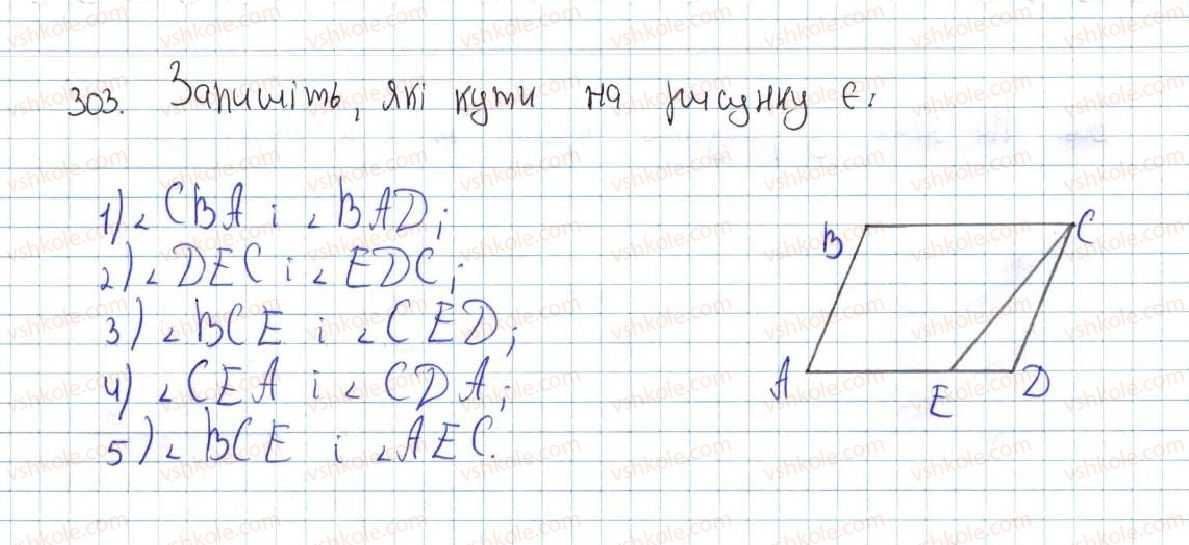 303. Запишіть, які кути на рисунку є:
1) ∠ CBA і ∠ BAD;
2) ∠ DEC і ∠ EDC;
3) ∠ BCE і ∠ CED;
4) ∠ CEA і ∠ CDA;
5) ∠ BCE і ∠ AEC.
B C
A E D
vshkole.com